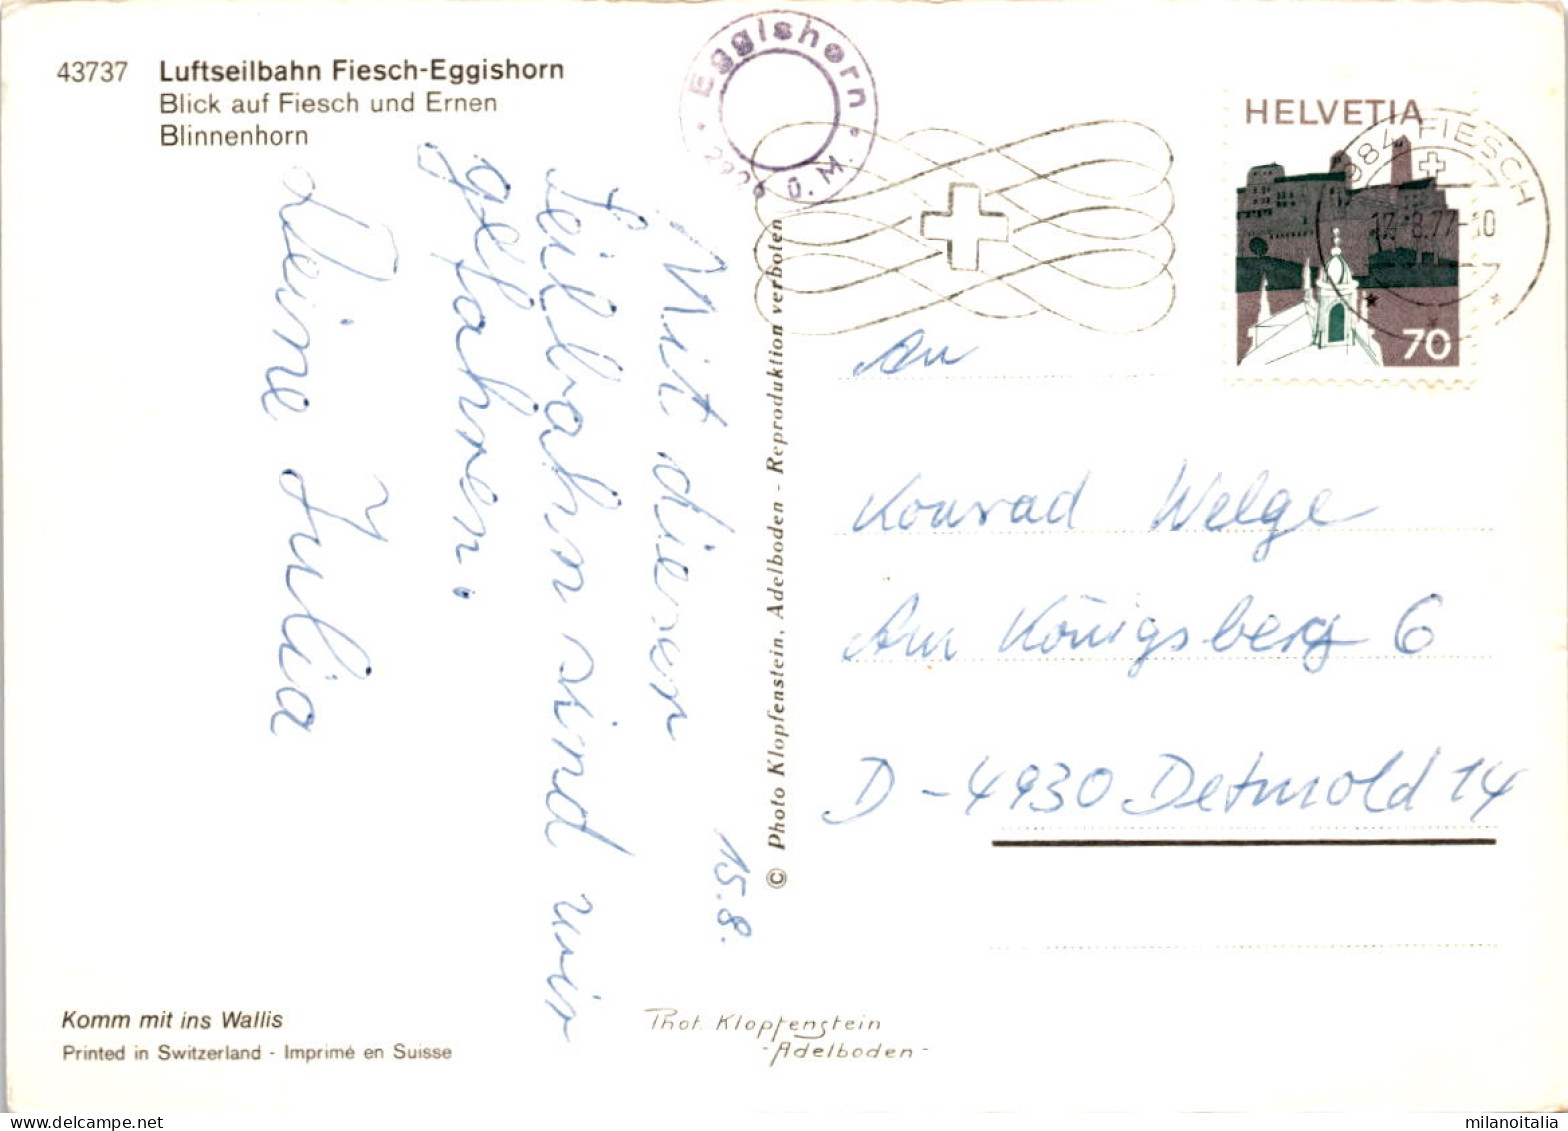 43737 Luftseilbahn Fiesch-Eggishorn
Blick auf Fiesch und Ernen
Blinnenhorn
Eggishorn
ü. M.
HELVETIA
70
3984 FIESCH
17.-8.77-10
15.8.
Mit dieser
Seilbahn sind wir
gefahren.
Deine Julia
© Photo Klopfenstein, Adelboden - Reproduktion verboten
An
Konrad Welge
Am Königsberg 6
D-4930 Detmold 14
Komm mit ins Wallis
Printed in Switzerland - Imprimé en Suisse
Phot. Klopfenstein
-Adelboden-
milanoitalia